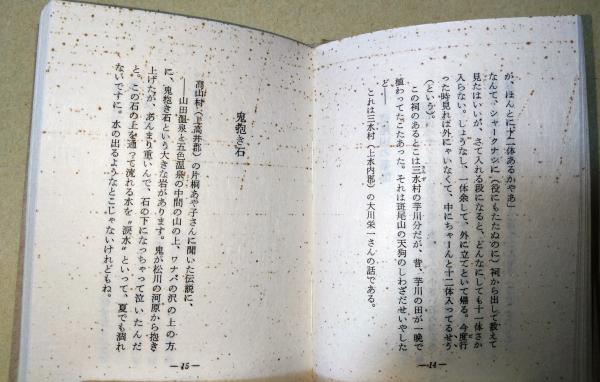 が、ほんとに十二体あるかやあ」
なんて、シャークナシに（役にもたたぬのに）祠から出して数えて
見たはいいが、さて入れる段になると、どんなにしても十一体さか
入らない。しょうなし、一体余して、外に立といて帰る。今度行
った時見れば外にゃいなくて、中にちゃーんと十二体入ってるぜう
（という）。
この祠のあるとこは三水村の芋川分だが、昔、芋川の田が一晩で
植わってたこたあった。それは斑尾山の天狗のしわざだせいやした
ど――
これは三水村（上水内郡）の大川栄一さんの話である。
―14―
鬼抱き石
高山村（上高井郡）の片桐あや子さんに聞いた伝説に、
――山田温泉と五色温泉の中間の山の上、ワナバの沢の上の方
に、鬼抱き石という大きな岩があります。鬼が松川の河原から抱き
上げたが、あんまり重いんで、石の下になっちゃって泣いたんだ
と。この石の上を通って流れる水を〝涙水〟といって、夏でも涸れ
ないですに。水の出るようなとこじゃないけれどもね。
―15―